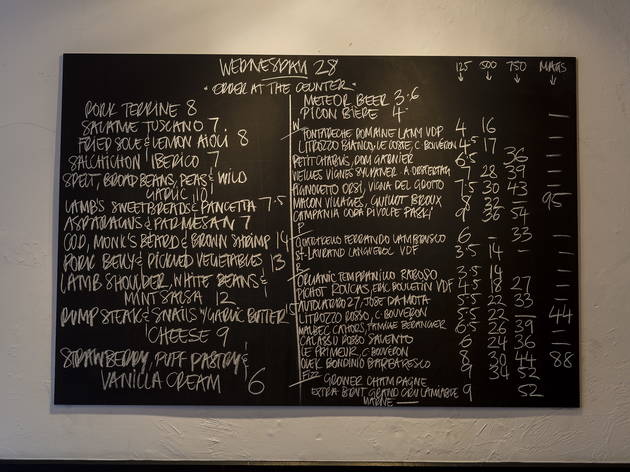 WEDNESDAY 28
"ORDER AT THE COUNTER"
PORK TERRINE 8
SALAME TUSCANO 7.
FRIED SOLE & LEMON AIOLI 8
SALCHICHON IBERICO 7
SPELT, BROAD BEANS, PEAS & WILD
GARLIC 10
LAMB'S SWEETBREADS & PANCETTA 7.5
ASPARAGUS & PARMESAN 7
COD, MONK'S BEARD & BROWN SHRIMP 14
PORK BELLY & PICKLED VEGETABLES 13
LAMB SHOULDER, WHITE BEANS &
MINT SALSA 12
RUMP STEAK & SNAILS W/GARLIC BUTTER 15
CHEESE 9
STRAWBERRY, PUFF PASTRY &
VANILLA CREAM 6
125 500 750 MAGS
METEOR BEER 3.6
PICON BIERE 4.
W
FONTARECHE DOMAINE LAMY VDP 4 16 —
LITROZZO BIANCO, LE COSTE, C BOUVERON 4.5 17 —
PETIT CHABLIS, DOM GARNIER 6.5 36 —
VIEILLES VIGNES SYLVANER A OSTERTAG 7 28 39 —
PIGNOLETO ORSI, VIGNA DEL GROTTO 7.5 30 43 —
MACON VILLAGES, GUILLOT BROUX 8 32 — 95
CAMPANIA CODA DI VOLPE 9 36 54 —
P
QUARTICELLO FERRANDO LAMBRUSCO 6 — 33 —
ST-LAURAND LANGUEROL VDF 3.5 14 —
R
ORGANIC TEMPRANILLO RABOSO 3.5 14 —
PICHOT ROUCAS, ERIC BOULETIN VDF 4.5 18 27 —
27, JOSE DA MOTA 5.5 22 33 —
LITROZZO ROSSO, C BOUVERON 5.5 22 — 44
MALBEC CAHORS, 6.5 26 39 —
CALASSO ROSSO SALENTO 6 24 36 —
LE PRIMEUR, C BOUVERON 8 30 44 88
BONDINIO BARBARESCO 9 34 52 —
FIZZ
GROWER CHAMPAGNE
EXTRA BRUT GRAND CRU 9 52
MARNE —